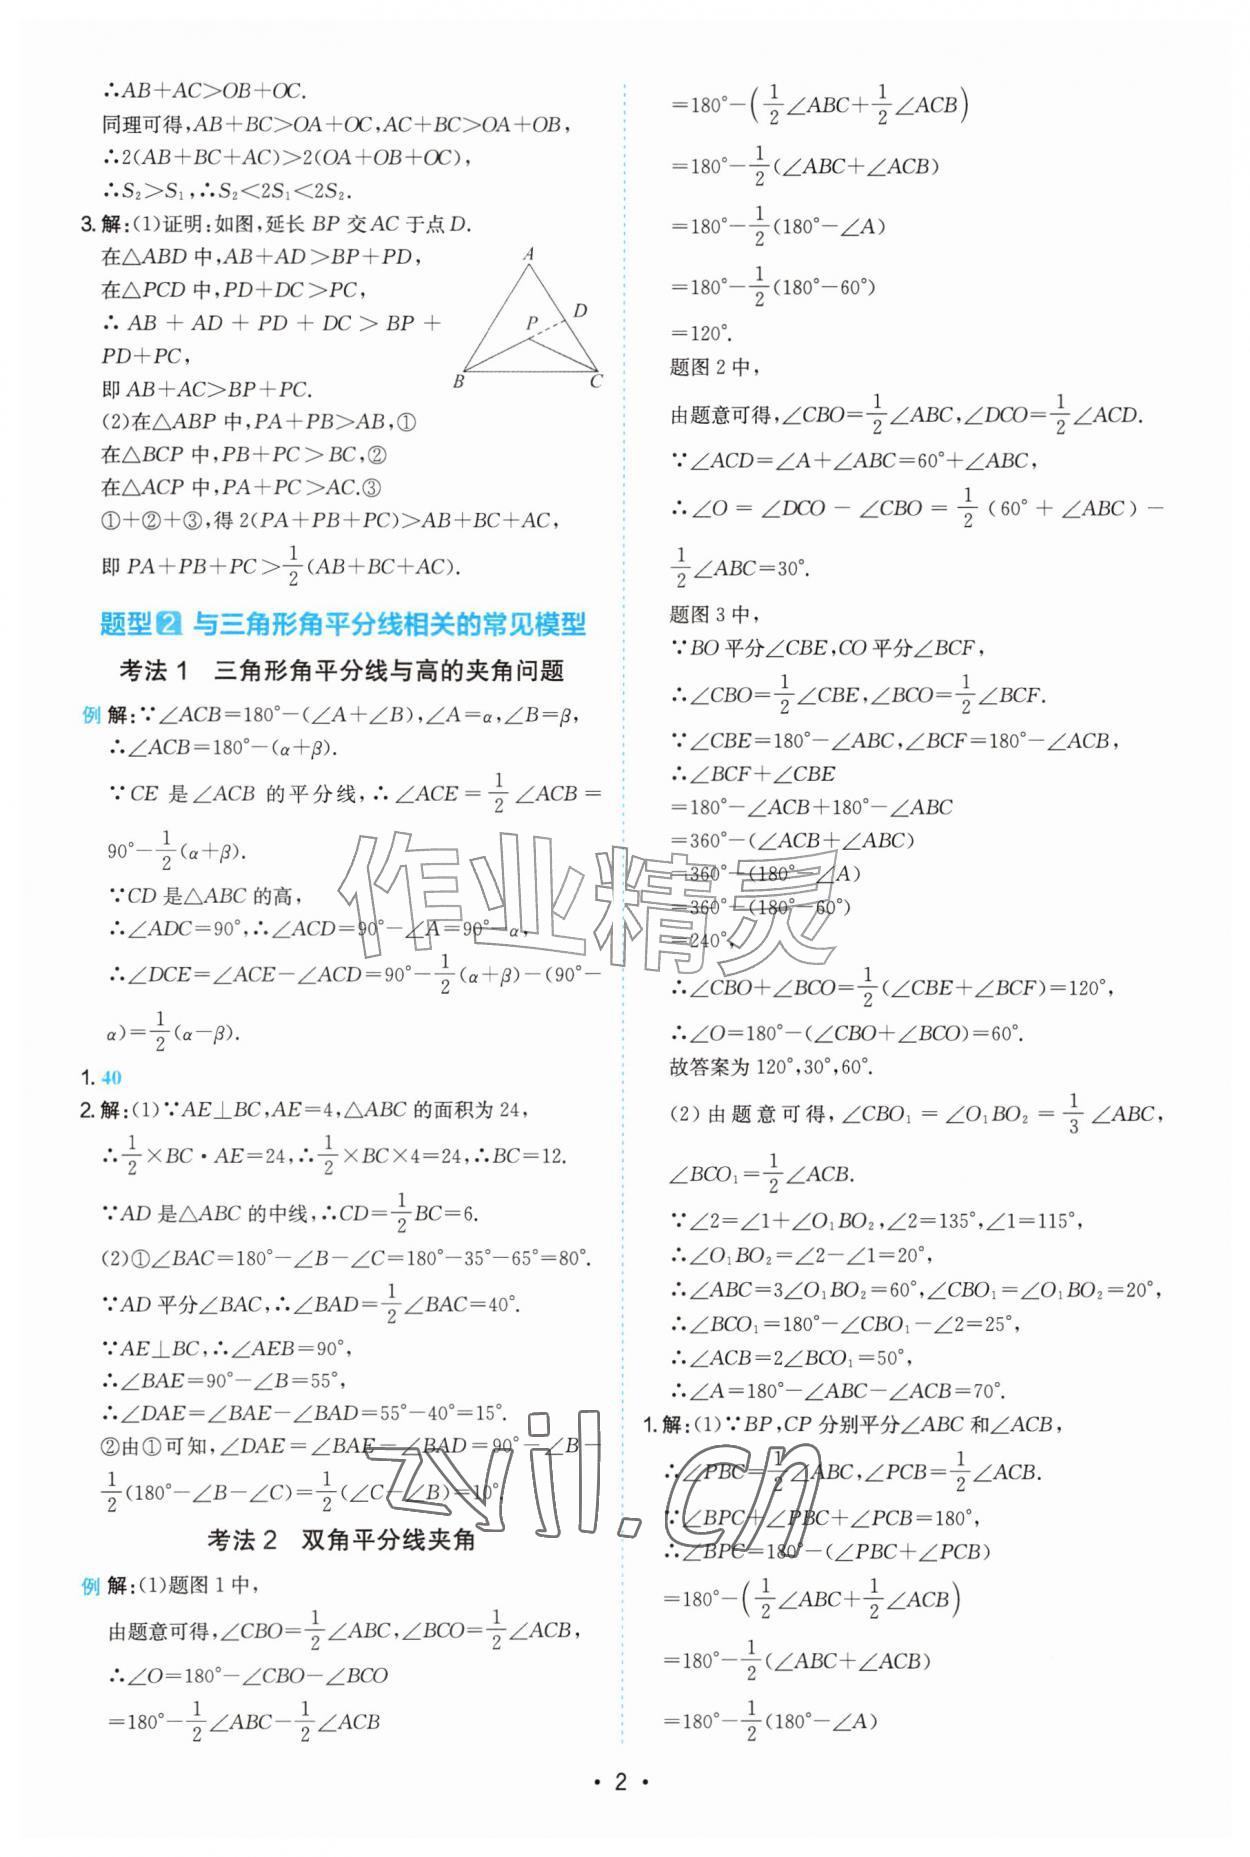 ∴AB+AC>OB+OC.
同理可得,AB+BC>OA+OC,AC+BC>OA+OB,
∴2(AB+BC+AC)>2(OA+OB+OC),
∴S₂>S₁,∴S₂<2S₁<2S₂.
3. 解:(1)证明:如图,延长 BP 交 AC 于点 D.
在△ABD 中,AB+AD>BP+PD,
在△PCD 中,PD+DC>PC,
∴ AB + AD + PD + DC > BP +
PD+PC,
即 AB+AC>BP+PC.
A
D
P
B
C
(2)在△ABP 中,PA+PB>AB,①
在△BCP 中,PB+PC>BC,②
在△ACP 中,PA+PC>AC.③
①+②+③,得 2(PA+PB+PC)>AB+BC+AC,
即 PA+PB+PC>1/2(AB+BC+AC).
题型2 与三角形角平分线相关的常见模型
考法 1 三角形角平分线与高的夹角问题
例 解:∵∠ACB=180°-(∠A+∠B),∠A=α,∠B=β,
∴∠ACB=180°-(α+β).
∵CE 是∠ACB 的平分线,∴∠ACE=1/2∠ACB=
90°-1/2(α+β).
∵CD 是△ABC 的高,
∴∠ADC=90°,∴∠ACD=90°-∠A=90°-α,
∴∠DCE=∠ACE-∠ACD=90°-1/2(α+β)-(90°-
α)=1/2(α-β).
1. 40
2. 解:(1)∵AE⊥BC,AE=4,△ABC 的面积为 24,
∴1/2×BC·AE=24,∴1/2×BC×4=24,∴BC=12.
∵AD 是△ABC 的中线,∴CD=1/2BC=6.
(2)①∠BAC=180°-∠B-∠C=180°-35°-65°=80°.
∵AD 平分∠BAC,∴∠BAD=1/2∠BAC=40°.
∵AE⊥BC,∴∠AEB=90°,
∴∠BAE=90°-∠B=55°,
∴∠DAE=∠BAE-∠BAD=55°-40°=15°.
②由①可知,∠DAE=∠BAE-∠BAD=90°-∠B-
1/2(180°-∠B-∠C)=1/2(∠C-∠B)=10°.
考法 2 双角平分线夹角
例 解:(1)题图 1 中,
由题意可得,∠CBO=1/2∠ABC,∠BCO=1/2∠ACB,
∴∠O=180°-∠CBO-∠BCO
=180°-1/2∠ABC-1/2∠ACB
=180°-(1/2∠ABC+1/2∠ACB)
=180°-1/2(∠ABC+∠ACB)
=180°-1/2(180°-∠A)
=180°-1/2(180°-60°)
=120°.
题图 2 中,
由题意可得,∠CBO=1/2∠ABC,∠DCO=1/2∠ACD.
∵∠ACD=∠A+∠ABC=60°+∠ABC,
∴∠O=∠DCO-∠CBO=1/2(60°+∠ABC)-
1/2∠ABC=30°.
题图 3 中,
∵BO 平分∠CBE,CO 平分∠BCF,
∴∠CBO=1/2∠CBE,∠BCO=1/2∠BCF.
∵∠CBE=180°-∠ABC,∠BCF=180°-∠ACB,
∴∠BCF+∠CBE
=180°-∠ACB+180°-∠ABC
=360°-(∠ACB+∠ABC)
=360°-(180°-∠A)
=360°-(180°-60°)
=240°,
∴∠CBO+∠BCO=1/2(∠CBE+∠BCF)=120°,
∴∠O=180°-(∠CBO+∠BCO)=60°.
故答案为 120°,30°,60°.
(2)由题意可得,∠CBO₁=∠O₁BO₂=1/3∠ABC,
∠BCO₁=1/2∠ACB.
∵∠2=∠1+∠O₁BO₂,∠2=135°,∠1=115°,
∴∠O₁BO₂=∠2-∠1=20°,
∴∠ABC=3∠O₁BO₂=60°,∠CBO₁=∠O₁BO₂=20°,
∴∠BCO₁=180°-∠CBO₁-∠2=25°,
∴∠ACB=2∠BCO₁=50°,
∴∠A=180°-∠ABC-∠ACB=70°.
1. 解:(1)∵BP,CP 分别平分∠ABC 和∠ACB,
∴∠PBC=1/2∠ABC,∠PCB=1/2∠ACB.
∵∠BPC+∠PBC+∠PCB=180°,
∴∠BPC=180°-(∠PBC+∠PCB)
=180°-(1/2∠ABC+1/2∠ACB)
=180°-1/2(∠ABC+∠ACB)
=180°-1/2(180°-∠A)
作业精灵
zyjl.cn
• 2 •